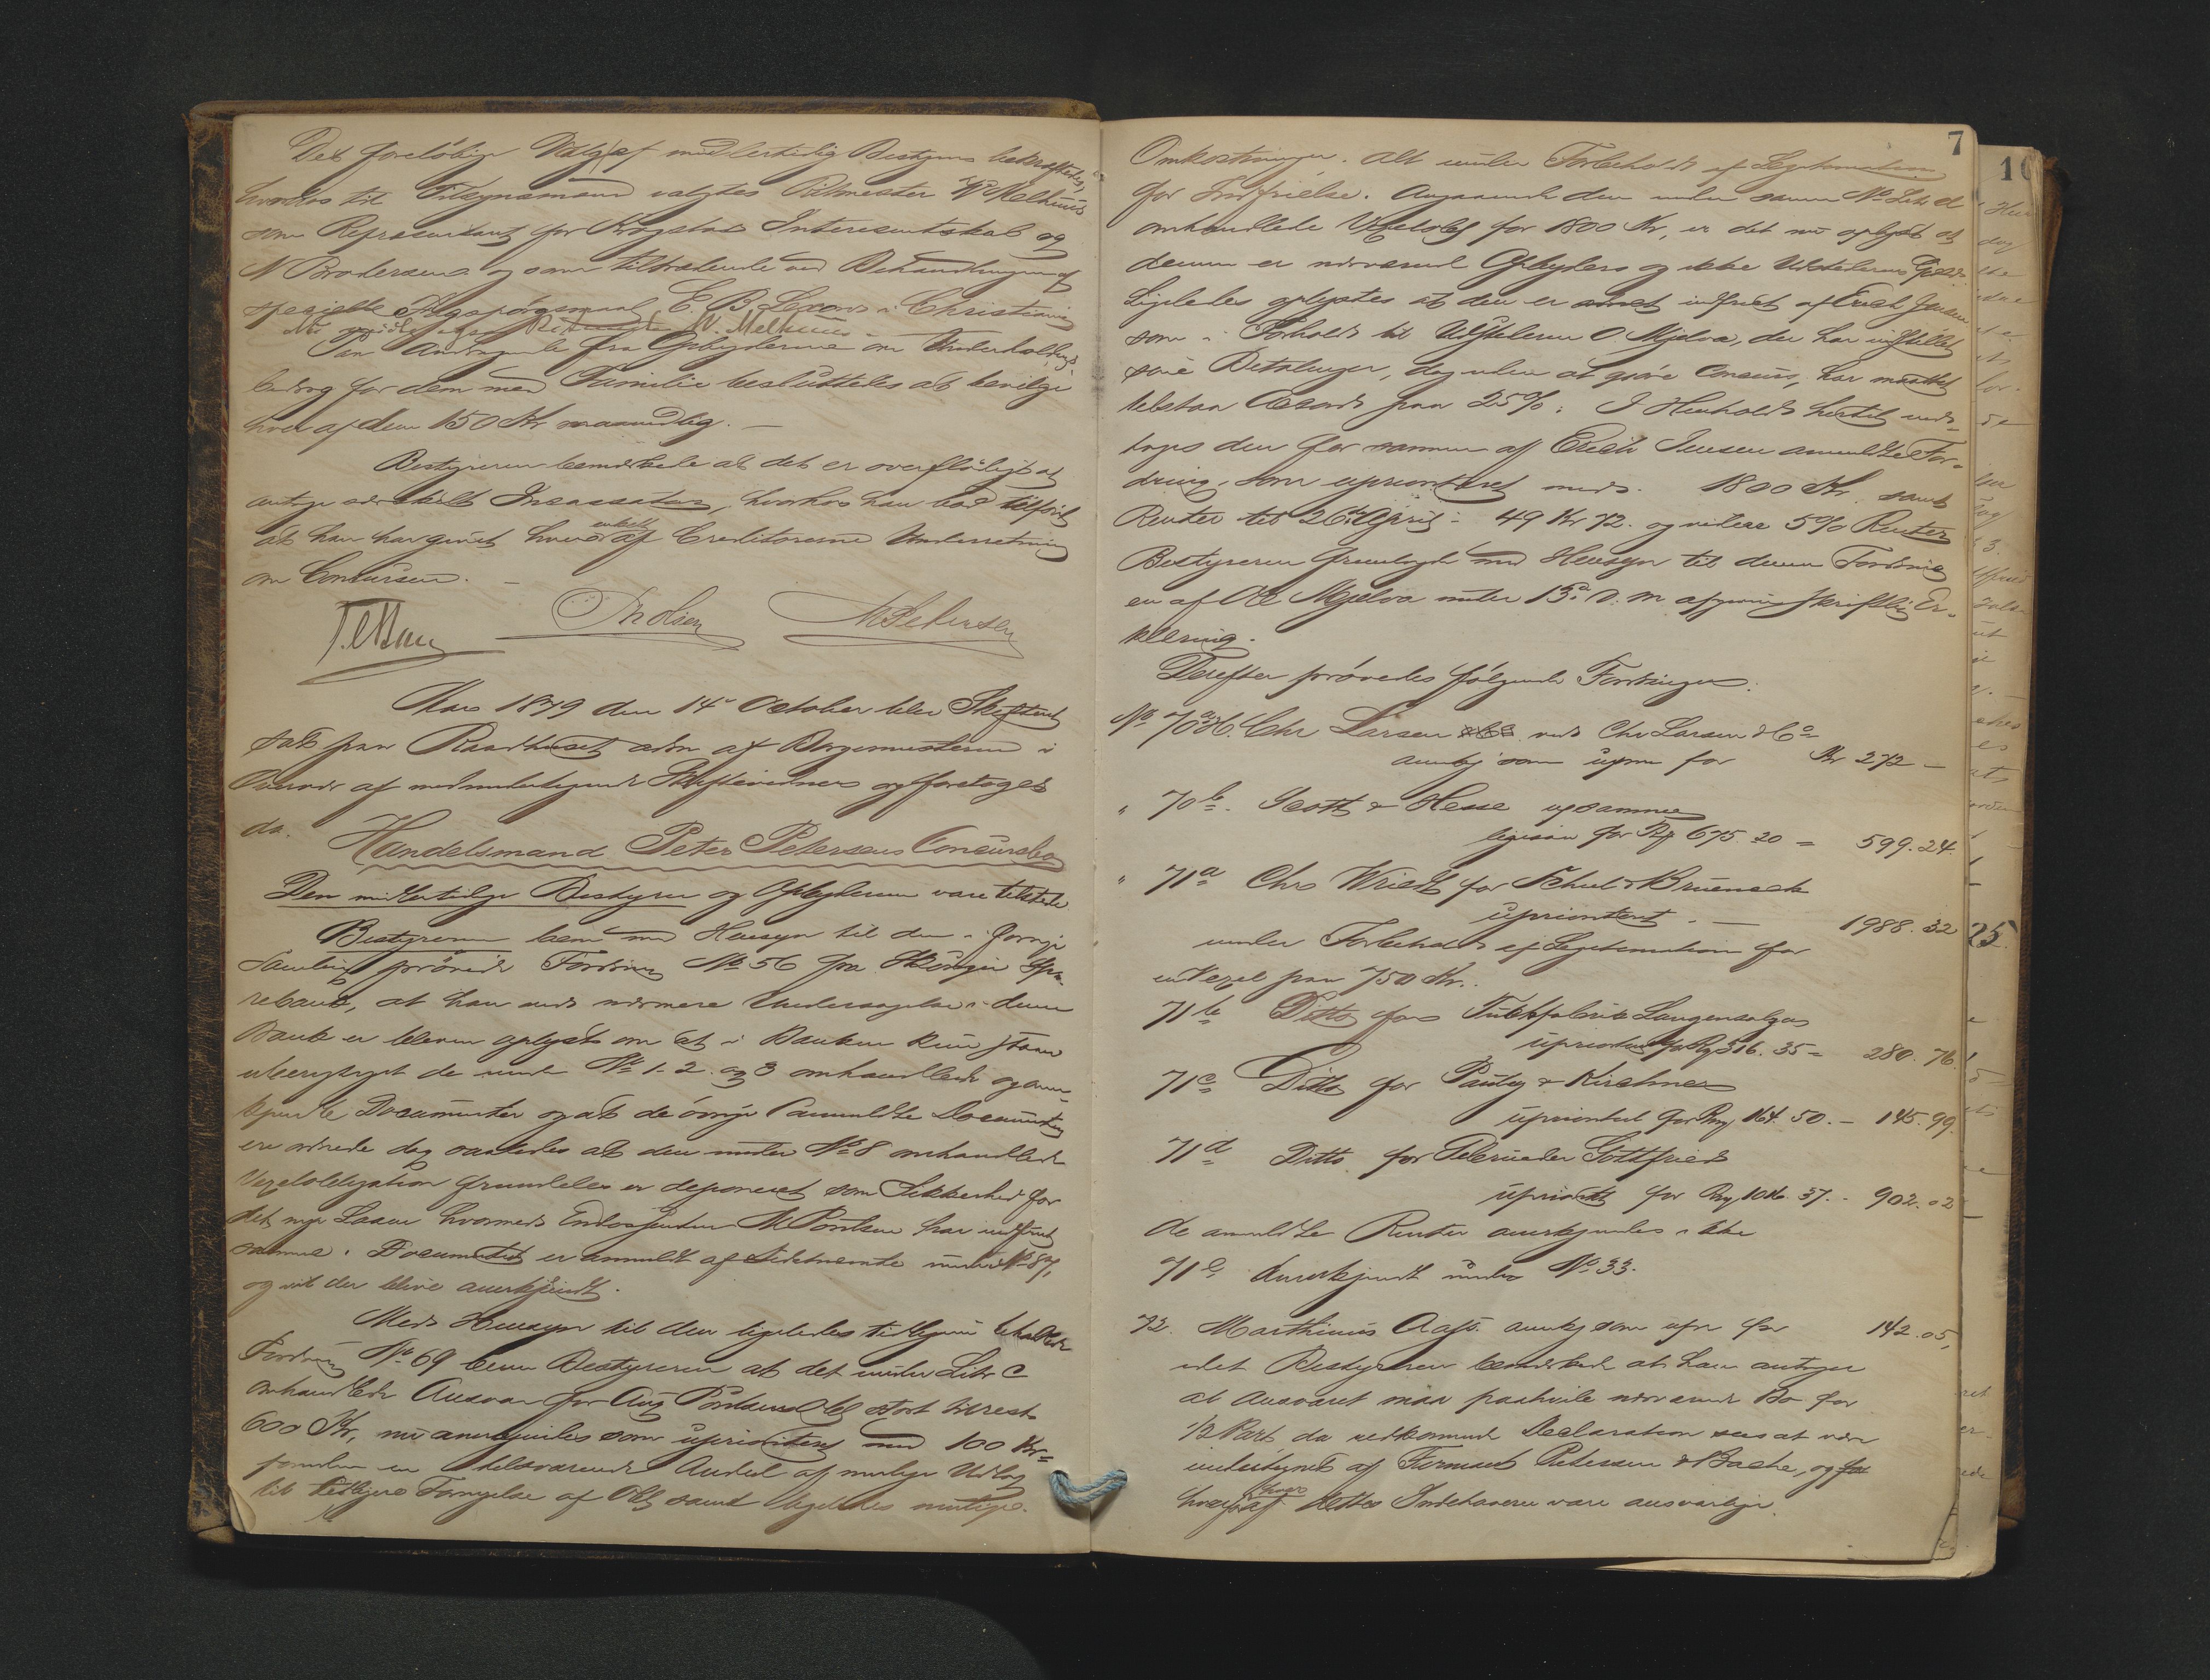 Det foreløbige Valg af midlertidig Bestyrer bekræftedes,
hvorhos til Tilsynsmænd valgtes Ritmester W Melhuus
som Repræsentant for Krogstad Interessentskab og
N Brodersen og som tiltrædende ved Behandlingen af
specielle Salgspörgsmaal C. B. i Christiania
Ritmester W. Melhuus
Paa Andragende fra Opbyderne om Underholdnings
bidrag for dem med Familie besluttedes at bevilge
hver af dem 150 Kr maanedlig. —
Bestyreren bemærkede at det er overflödigt at
antage særskilt Incassator, hvorhos han bad tilfört
at han har givet hver enkelt af Creditorerne Underretning
om Concursen. —
Th Olsen M Pedersen
Aar 1879 den 14de October blev Skifteret
sat paa Raadhuset adm af Borgermesteren i
Overvær af medundertegnede Skiftevidner og foretoges
da.
Handelsmand Peter Petersens Concursbo
Den midlertidige Bestyrer og Opbyderen vare tilstede
Bestyreren bem med Hensyn til den i forrige
Samling prövede Fordring No 56 fra Spa-
rebank, at han ved nærmere Undersögelse i denne
Bank er bleven oplyst om at i Banken kun staar
ubenyttet de under No 1. 2. og 3 omhandlede og aner-
kjendte Documenter og at de övrige anmeldte Documenter
ere ordnede dog saaledes at den under No 8 omhandlede
Vexelobligation fremdeles er deponeret som Sikkerhed for
det nye Laan hvormed Endossenten M Poulsen har indfriet
samme. Documentet er anmeldt af Sidstnævnte under No 87,
og vil der blive anerkjendt.
Med Hensyn til den ligeledes tidligere behandlede
Fordring No 69 bem Bestyreren at det under Litr c
omhandlede Ansvar for Aug Poulsens Obl stort til rest
600 Kr, nu anerkjendes som uprioriteret med 100 Kr
foruden en tilsvarende Andel af mulige Udlæg
til tidligere Fornyelse af Obl samt ligeledes mulige
7
Omkostninger. Alt under Forbehold af Legitimation
for Indfrielse. Angaaende den under samme No Litr d
omhandlede Vexelobl for 1800 Kr, er det nu oplyst at
denne er nærværende Opbyders og ikke Udstederens Gjæld
Ligeledes oplystes at den er indfriet af Erich Jensen
som i Forhold til Udstederen O. Mjelva, der har indstillet
sine Betalinger, dog uden at gjöre Concurs, har maattet
tilstaa Accord paa 25%. I Henhold hertil ud-
toges den for samme af Erich Jensen anmeldte For-
dring, som uprioriteret med 1800 Kr, samt
Renter til 26de April 49 Kr 72. og videre 5% Renter
Bestyreren fremlagde med Hensyn til denne Fordring
en af Ole Mjelva under 13de d. m. afgiven skriftlig Er-
klæring.
Derefter prövedes fölgende Fordringer.
No 70 a. Chr Larsen ved Chr Larsen & Co
anerkj som upri for Kr 272 —
" 70 b. Scott & Hesse
ligesaa for Rm 675. 20 = 599. 24.
" 71 a Chrs Wriedt for Schul & Brueneck
uprioriteret — 1988. 32
under Forbehold af Legitimation for
en Vexel paa 750 Kr.
71 b Ditto for Tuchfabrik Langensalza
uprioriteret for Rm 316. 35 = 280. 76.
71 c Ditto for Pauly & Kirchner
uprioriteret for Rm 164. 50. — 145. 99.
71 d Ditto for Gottfried
uprioritet for Rm 1016. 37. - 902. 02
de anmeldte Renter anerkjendes ikke
71 e Anerkjendt under No 33.
72. Marthinus Aas. anerkj som upr for 142. 05,
idet Bestyreren bemærkede at han antager
at Ansvaret maa paahvile nærværende Bo for
1/2 Part, da vedkommende Declaration sees at være
undertegnet af Firmaet Petersen & Bache, og
hver af dettes Indehavere vare ansvarlige.
10
25.